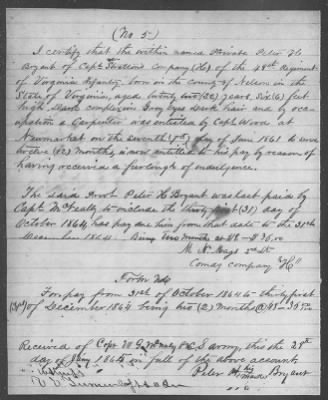 (No 5)
I certify that the within named Private Peter H
Bryant of Capt Company (H) of the 49th Regiment
of Virginia Infantry born in the county of Nelson in the
State of Virginia, aged twenty two (22) years, Six (6) feet
high, Dark complexion Gray eyes Dark hair and by occ
upation a Carpenter was enlisted by Capt Wood at
Newmarket on the seventh (7th) day of June 1861 to serve
twelve (12) months, is now entitled to his pay by reason of
having received a furlough of indulgence.
The said Peter H Bryant was last paid by
Capt McNealy to include the thirty first (31) day of
October 1864, has pay due him from that date to the 31st
December 1864 Being two months at
M. N. Hays 2nd Lt
Comdg company "H"
For pay from 31st of October 1864 to thirty first
(31st) of December 1864 being two (2) months @
Received of Capt W G McNealy C S army, this the 28th
day of 1865 in full of the above account
Peter H Bryant
his
mark